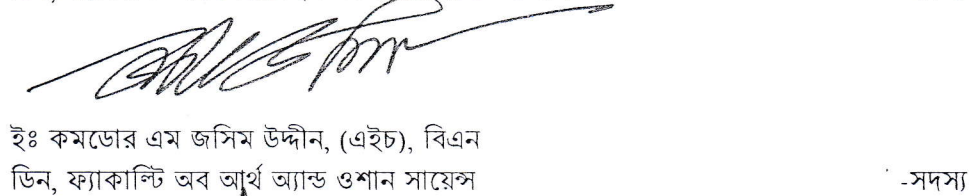 ইঃ কমডোর এম জসিম উদ্দীন, (এইচ), বিএন
ডিন, ফ্যাকাল্টি অব আর্থ অ্যান্ড ওশান সায়েন্স -সদস্য